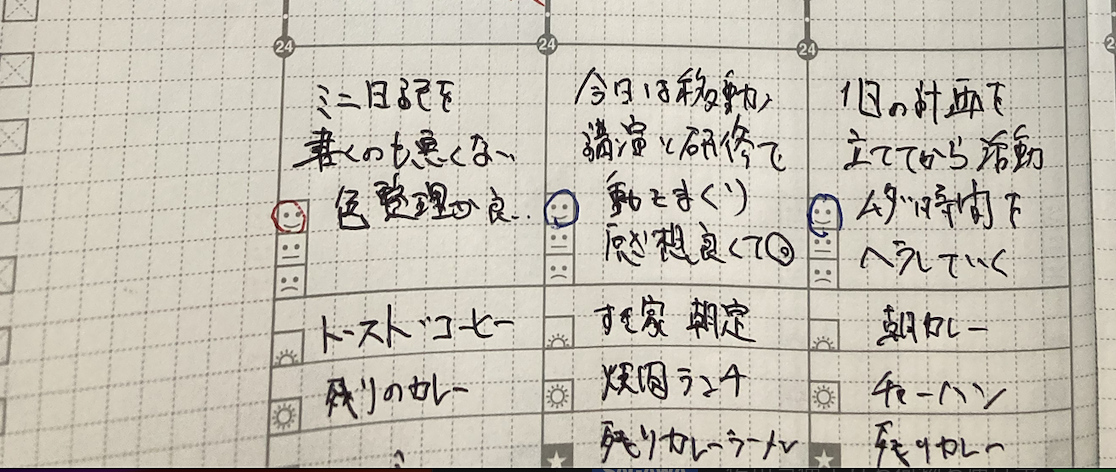 24
ミニ日記を
書くのも悪くない
色整理が良い
トースト コーヒー
残りのカレー
24
今日は移動、
講演と研修で
動きまくり
感想良くて◎
すき家 朝定
焼肉ランチ
残りカレーラーメン
24
1日の計画を
立ててから活動
ムダ時間を
ヘラしていく
朝カレー
チャーハン
残りカレー